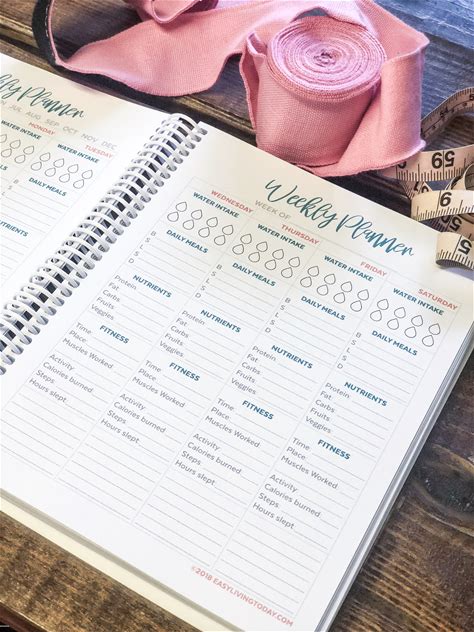 Planner
JUL AUG SEP OCT NOV DEC
MONDAY
TUESDAY
WATER INTAKE
WATER INTAKE
DAILY MEALS
DAILY MEALS
Weekly Planner
WEEK OF
WEDNESDAY
WATER INTAKE
DAILY MEALS
B
S
L
S
D
NUTRIENTS
Protein
Fat
Carbs
Fruits
Veggies
FITNESS
Time
Place
Muscles Worked
Activity
Calories burned
Steps
Hours slept
THURSDAY
WATER INTAKE
DAILY MEALS
B
S
L
S
D
NUTRIENTS
Protein
Fat
Carbs
Fruits
Veggies
FITNESS
Time
Place
Muscles Worked
Activity
Calories burned
Steps
Hours slept
FRIDAY
WATER INTAKE
DAILY MEALS
B
S
L
S
D
NUTRIENTS
Protein
Fat
Carbs
Fruits
Veggies
FITNESS
Time
Place
Muscles Worked
Activity
Calories burned
Steps
Hours slept
SATURDAY
WATER INTAKE
DAILY MEALS
B
S
L
S
D
NUTRIENTS
Protein
Fat
Carbs
Fruits
Veggies
FITNESS
Time
Place
Muscles Worked
Activity
Calories burned
Steps
Hours slept
©2018 EASYLIVINGTODAY.COM
59